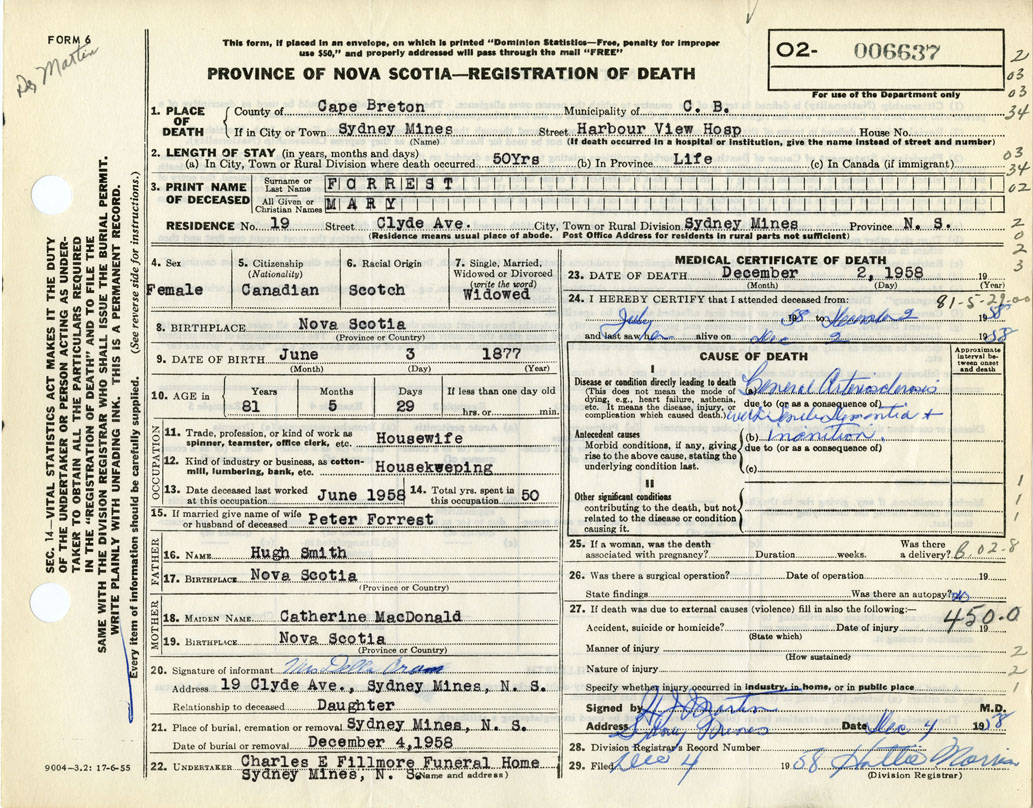 FORM 6
Martin
This form, if placed in an envelope, on which is printed "Dominion Statistics—Free, penalty for improper
use $50," and properly addressed will pass through the mail "FREE"
PROVINCE OF NOVA SCOTIA—REGISTRATION OF DEATH
O2- 006637
For use of the Department only
2
03
03
34
03
34
02
2
0
2
3
SEC. 14—VITAL STATISTICS ACT MAKES IT THE DUTY
OF THE UNDERTAKER OR PERSON ACTING AS UNDER-
TAKER TO OBTAIN ALL THE PARTICULARS REQUIRED
IN THE "REGISTRATION OF DEATH" AND TO FILE THE
SAME WITH THE DIVISION REGISTRAR WHO SHALL ISSUE THE BURIAL PERMIT.
WRITE PLAINLY WITH UNFADING INK. THIS IS A PERMANENT RECORD.
Every item of information should be carefully supplied. (See reverse side for instructions.)
1. PLACE OF DEATH County of Cape Breton Municipality of C. B.
If in City or Town Sydney Mines Street Harbour View Hosp House No.
(Name) (If death occurred in a hospital or institution, give the name instead of street and number)
2. LENGTH OF STAY (in years, months and days)
(a) In City, Town or Rural Division where death occurred 50Yrs (b) In Province Life (c) In Canada (if immigrant)
3. PRINT NAME OF DECEASED Surname or Last Name FORREST
All Given or Christian Names MARY
RESIDENCE No. 19 Street Clyde Ave. City, Town or Rural Division Sydney Mines Province N. S.
(Residence means usual place of abode. Post Office Address for residents in rural parts not sufficient)
4. Sex 5. Citizenship (Nationality) 6. Racial Origin 7. Single, Married, Widowed or Divorced (write the word)
Female Canadian Scotch Widowed
8. BIRTHPLACE Nova Scotia
(Province or Country)
9. DATE OF BIRTH June 3 1877
(Month) (Day) (Year)
10. AGE in Years Months Days If less than one day old
81 5 29 hrs. or min.
OCCUPATION
11. Trade, profession, or kind of work as
spinner, teamster, office clerk, etc. Housewife
12. Kind of industry or business, as cotton-
mill, lumbering, bank, etc. Housekweping
13. Date deceased last worked
at this occupation June 1958 14. Total yrs. spent in
this occupation 50
15. If married give name of wife
or husband of deceased Peter Forrest
FATHER
16. NAME Hugh Smith
17. BIRTHPLACE Nova Scotia
(Province or Country)
MOTHER
18. MAIDEN NAME Catherine MacDonald
19. BIRTHPLACE Nova Scotia
(Province or Country)
20. Signature of informant Mrs Della Oram
Address 19 Clyde Ave., Sydney Mines, N. S.
Relationship to deceased Daughter
21. Place of burial, cremation or removal Sydney Mines, N. S.
Date of burial or removal December 4,1958
22. UNDERTAKER Charles E Fillmore Funeral Home
Sydney Mines, N. S. (Name and address)
9004—3.2: 17-6-55
MEDICAL CERTIFICATE OF DEATH
23. DATE OF DEATH December 2, 1958 19
(Month) (Day) (Year)
24. I HEREBY CERTIFY that I attended deceased from: 81-5-29-00
July 1958 to December 2 1958
and last saw her alive on Dec 2 1958
CAUSE OF DEATH
Approximate interval between onset and death
I
Disease or condition directly leading to death
(This does not mean the mode of
dying, e.g., heart failure, asthenia,
etc. It means the disease, injury, or
complication which caused death.)
(a) General Arteriosclerosis
due to (or as a consequence of)
with Senile Dymontia +
Antecedent causes
Morbid conditions, if any, giving
rise to the above cause, stating the
underlying condition last.
(b) Inanition.
due to (or as a consequence of)
(c)
II
Other significant conditions
contributing to the death, but not
related to the disease or condition
causing it.
1
1
1
25. If a woman, was the death
associated with pregnancy? Duration weeks. Was there
a delivery? B.02-8
26. Was there a surgical operation? Date of operation 19
State findings Was there an autopsy? no
27. If death was due to external causes (violence) fill in also the following:—
450.0
Accident, suicide or homicide? Date of injury 19
(State which)
Manner of injury 2
(How sustained)
Nature of injury 2
Specify whether injury occurred in industry, in home, or in public place 1
Signed by H. J. Martin M.D.
Address Sydney Mines Date Dec 4 1958
28. Division Registrar's Record Number
29. Filed Dec 4 1958 Hattie Morrison
(Division Registrar)